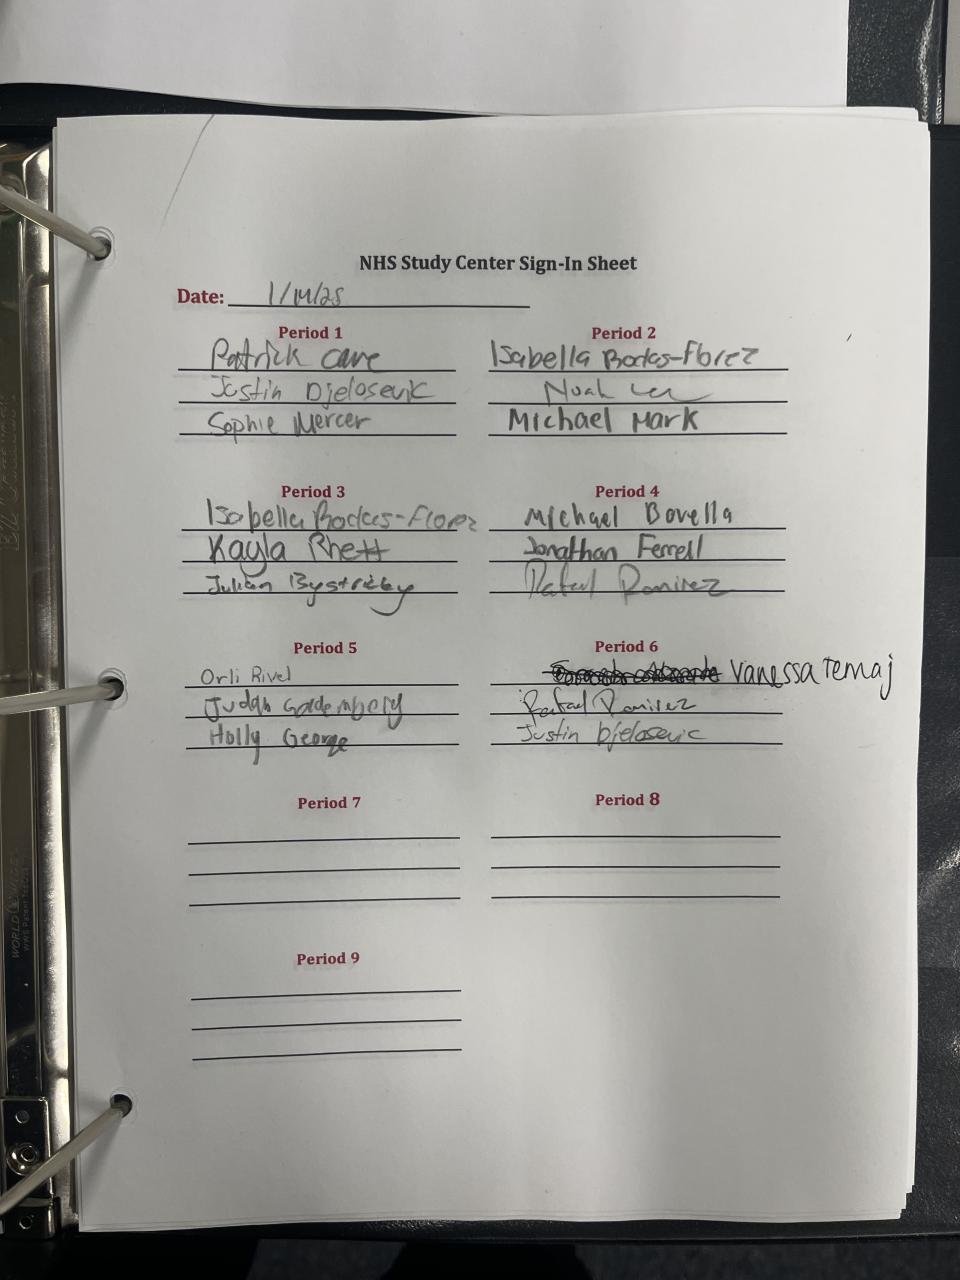 NHS Study Center Sign-In Sheet
Date: 1/14/25
Period 1
Patrick Cane
Justin Djelosevic
Sophie Mercer
Period 2
Isabella Bodas-Florez
Noah
Michael Mark
Period 3
Isabella Bodas-Florez
Kayla Rhett
Julian Bystricky
Period 4
Michael Bovella
Jonathan Ferrell
Rafael Ramirez
Period 5
Orli Rivel
Judah Goldemberg
Holly George
Period 6
Vanessa Temaj
Rafael Ramirez
Justin Djelosevic
Period 7
Period 8
Period 9